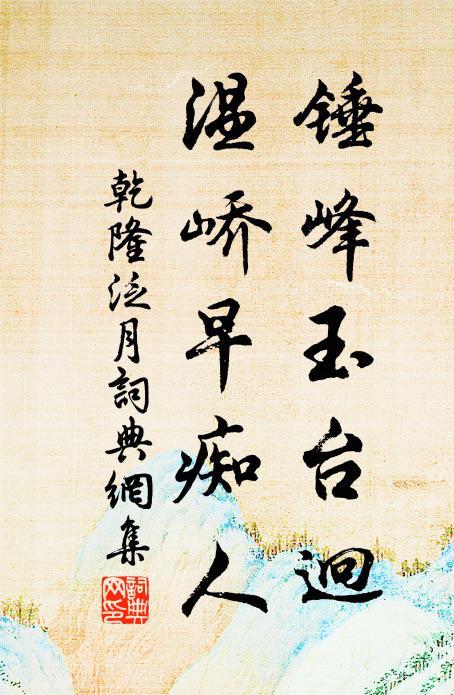 锤峰玉台迥
温峤早痴人
乾隆泛月詞典網集
詞典网印